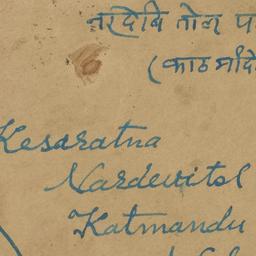 नरदेवि तोल प
(काठमांदौ
Kesaratna
Nardevitol
Katmandu